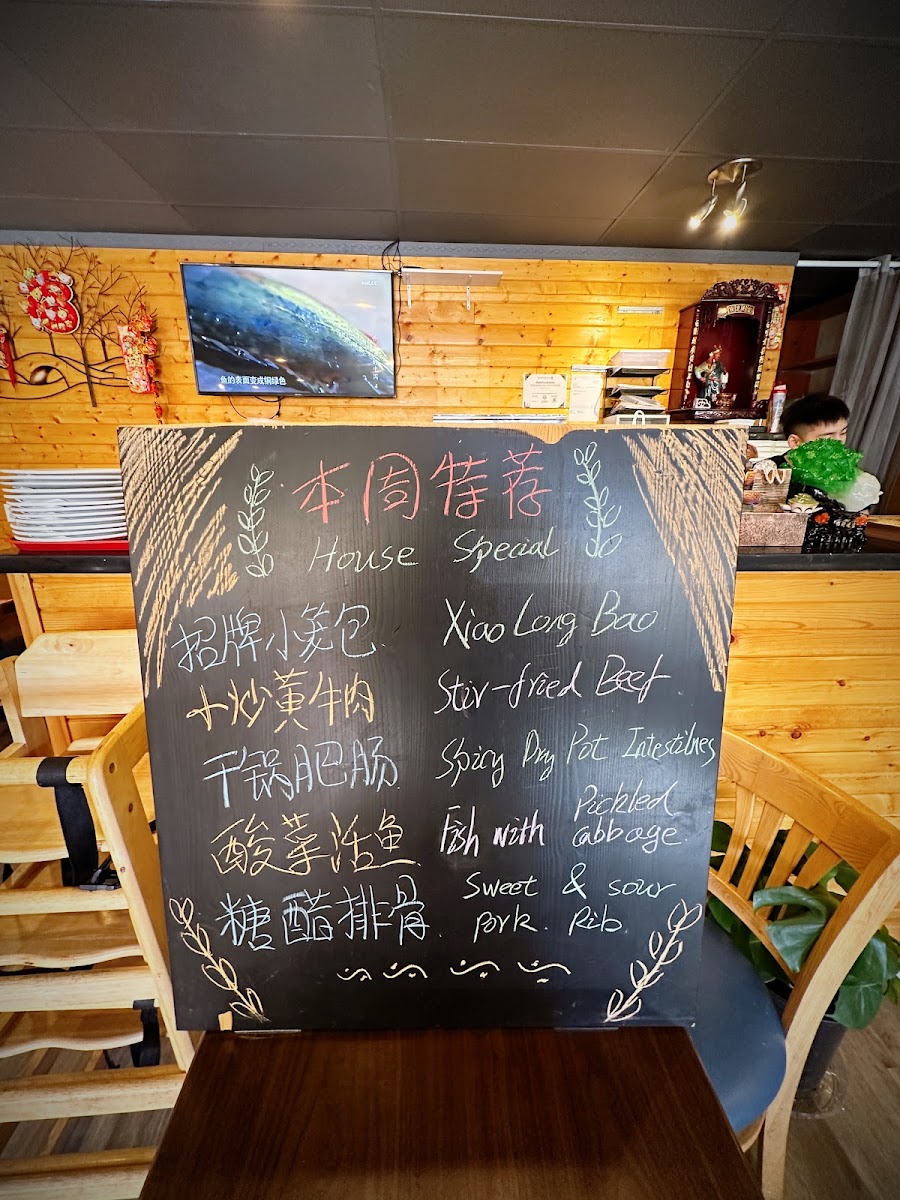 鱼的表面变成铜绿色
本周特荐
House Special
招牌小笼包 Xiao Long Bao
小炒黄牛肉 Stir-fried Beef
干锅肥肠 Spicy Dry Pot Intestines
酸菜活鱼 Fish with Pickled cabbage
糖醋排骨 Sweet & sour pork. Rib.